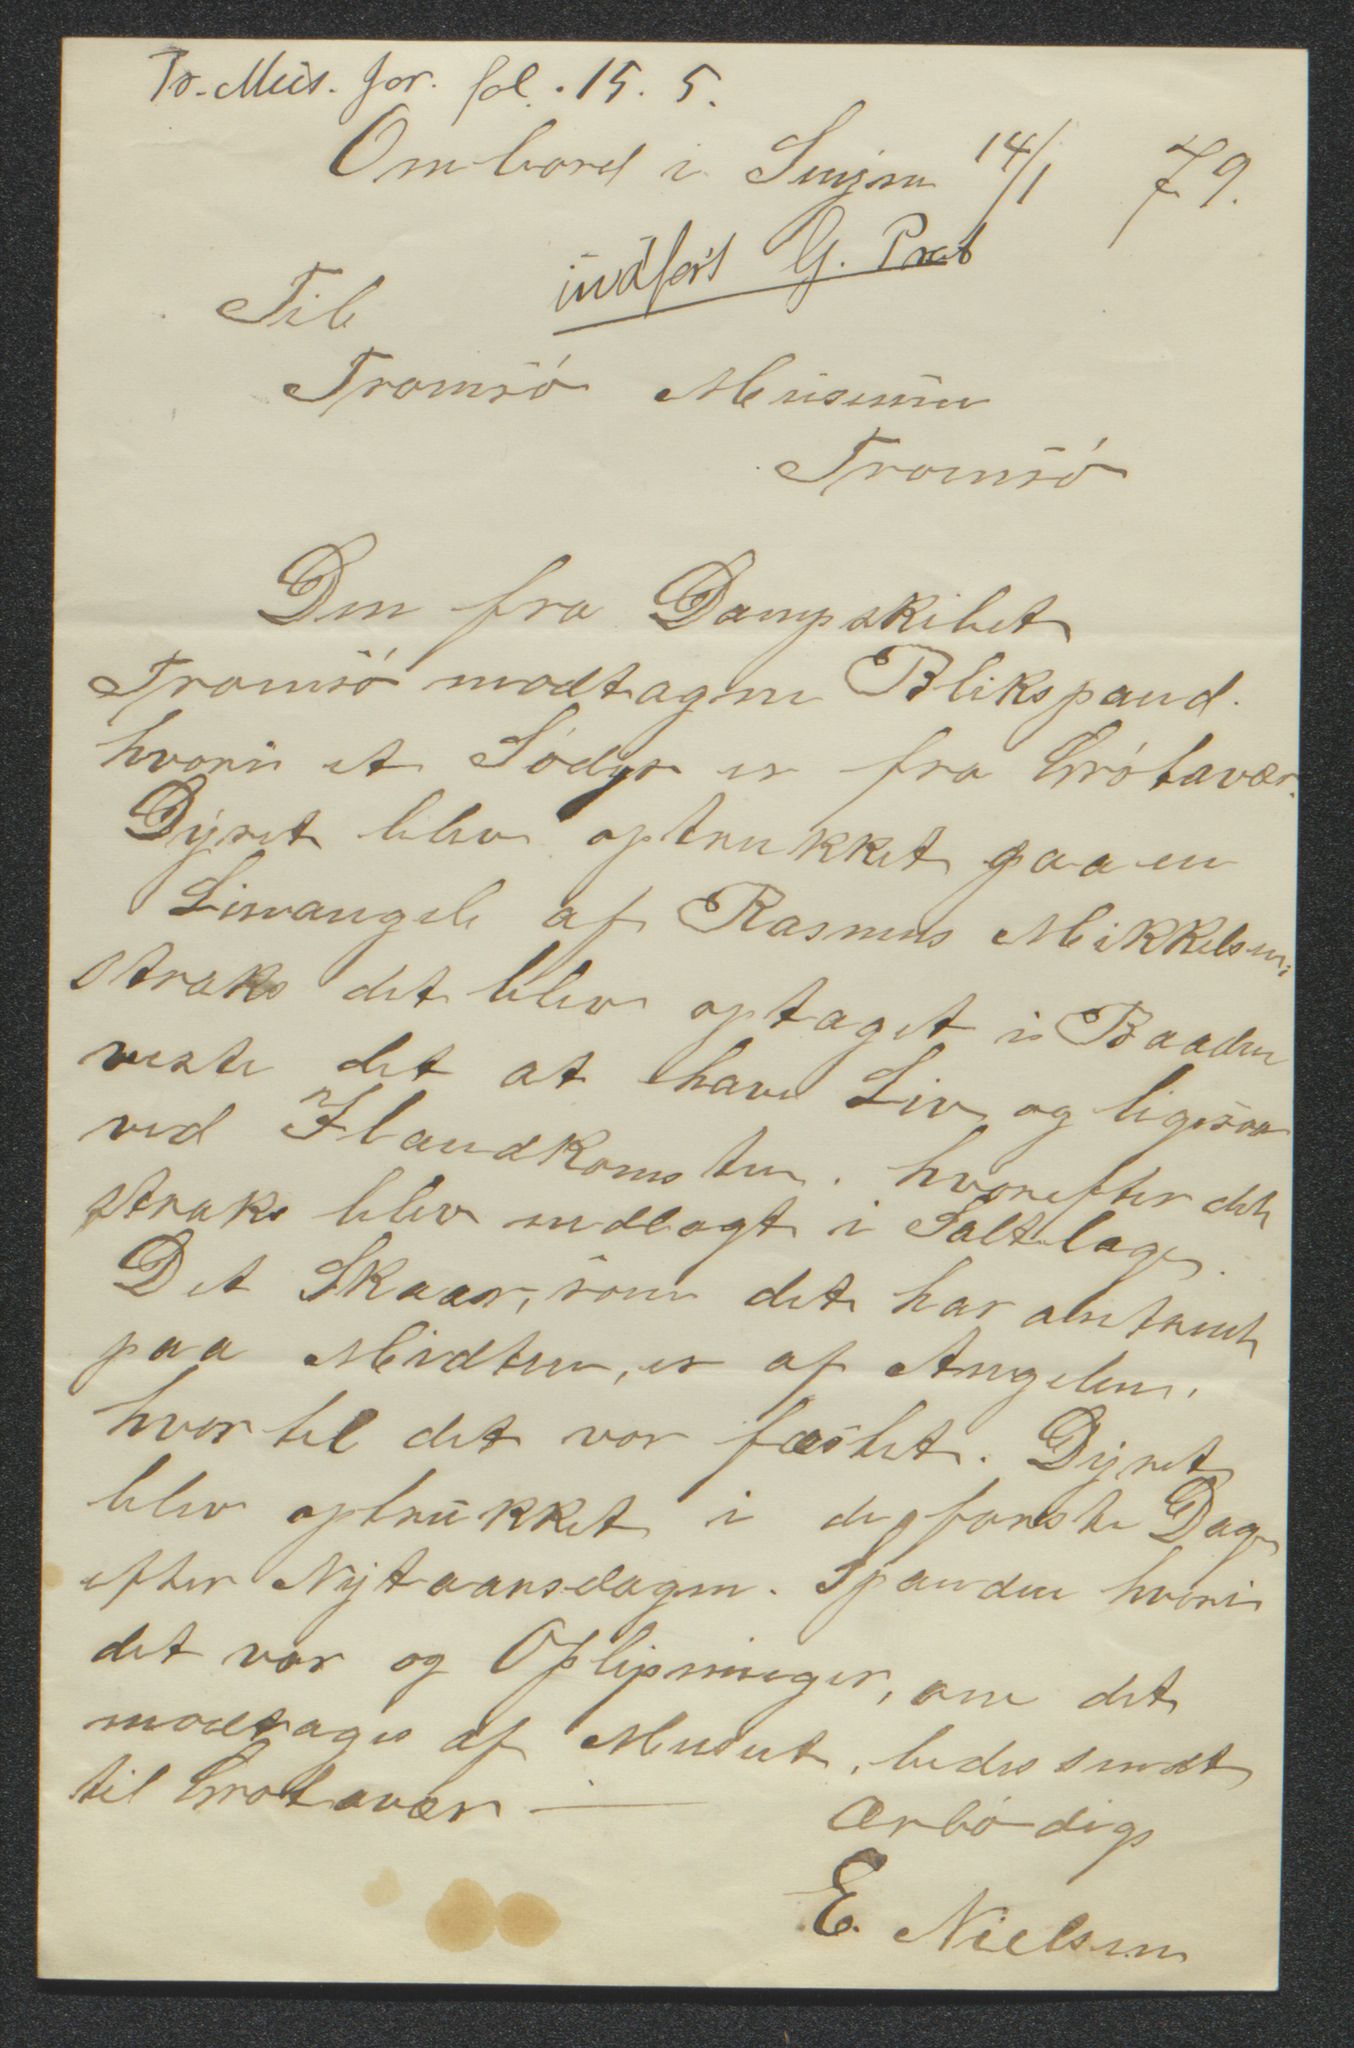 Tr. Mus. jor. fol. 15. 5.
Ombord i Senjen 14/1 79.
indført G. Prot
Til
Tromsö Museum
Tromsö
Den fra Dampskibet
Tromsö modtagne Blikspand.
hvori et Södyr er fra Grötavær.
Dyret blev optrukket paa en
Lineangel af Rasmus Mikkelsen;
straks det blev optaget i Baaden
viste det at have Liv og ligesaa
ved Ilandkomsten. hvorefter det
straks blev nedlagt i Saltlage.
Det Skaar, som det har omtrent
paa Midten, er af Angelen,
hvortil det var fæstet. Dyret
blev optrukket i de første Dage
efter Nytaarsdagen. Spanden hvori
det var og Oplysninger, om det
modtages af Museet, bedes sendt
til Grotavær —
Ærbödigs
E. Nielsen